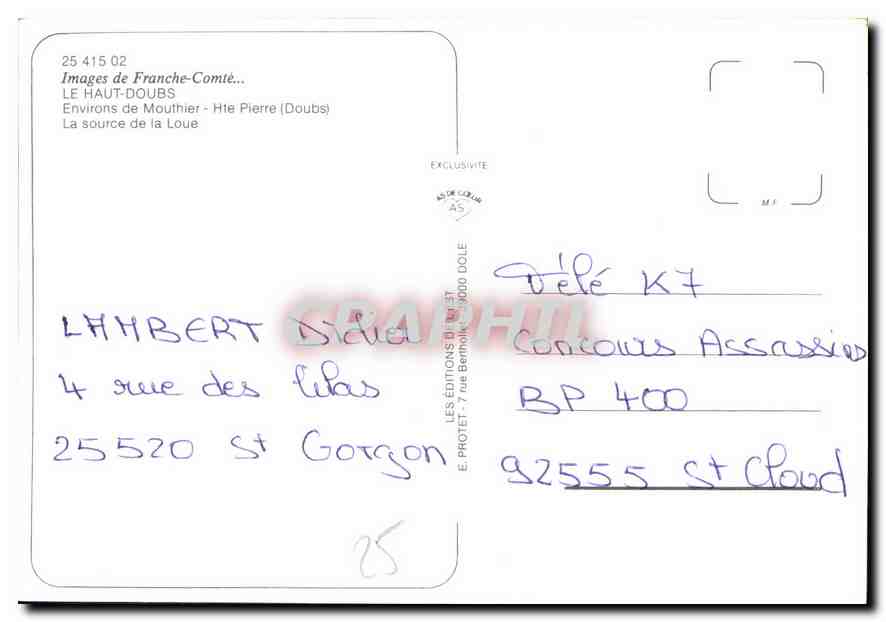 25 415 02
Images de Franche-Comté...
LE HAUT-DOUBS
Environs de Mouthier - Hte Pierre (Doubs)
La source de la Loue
EXCLUSIVITE
AS DE CŒUR
AS
M.F.
LES ÉDITIONS DE L'EST
E. PROTET - 7 rue Berthollet - 39000 DOLE
CPAPHIL
LAMBERT Didier
4 rue des lilas
25520 St Gorgon
Télé K7
Concours Assassins
BP 400
92555 St Cloud
25